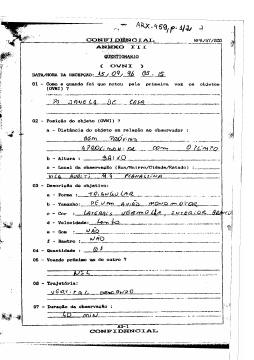 ARX-459, p. 1/2
CONFIDENCIAL
ANEXO III
QUESTIONARIO
( OVNI )
DATA/HORA DA RECEPÇÃO: 15/09/96 03:15
01 - Como e quando foi que notou pela primeira vez os objetos
(OVNI) ?
DA JANELA DE CASA
02 - Posição do objeto (OVNI) :
a - Distância do objeto em relação ao observador :
BEM PRÓXIMO
APROXIMANDO-SE COM O TEMPO
b - Altura : BAIXO
c - Local da observação (Rua/Bairro/Cidade/Estado) :
03 - Descrição do objetivo:
a - Forma : TRIANGULAR
b - Tamanho: DE UM AVIÃO MONOMOTOR
c - Cor : LATERAIS VERMELHA, INTERIOR BRANCO
d - Velocidade: LENTO
e - Som : NÃO
f - Rastro : NÃO
04 - Quantidade : 01
05 - Voando próximo um do outro ?
06 - Trajetória:
VERTICAL DESCENDO
07 - Duração da observação :
40 MIN
CONFIDENCIAL